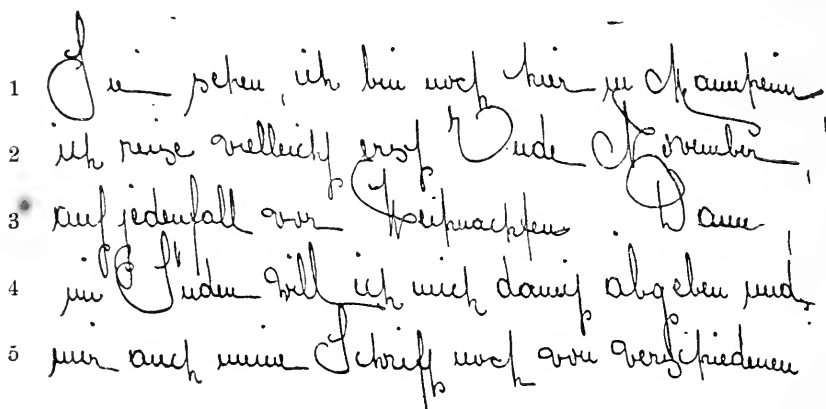 1 Sie sehen, ich bin noch hier in Mannheim.
2 ich reise vielleicht erst Ende November,
3 auf jedenfall vor Weihnachten. Dann
4 im Süden will ich mich damit abgeben und
5 mir auch meine Schrift noch von verschiedenen